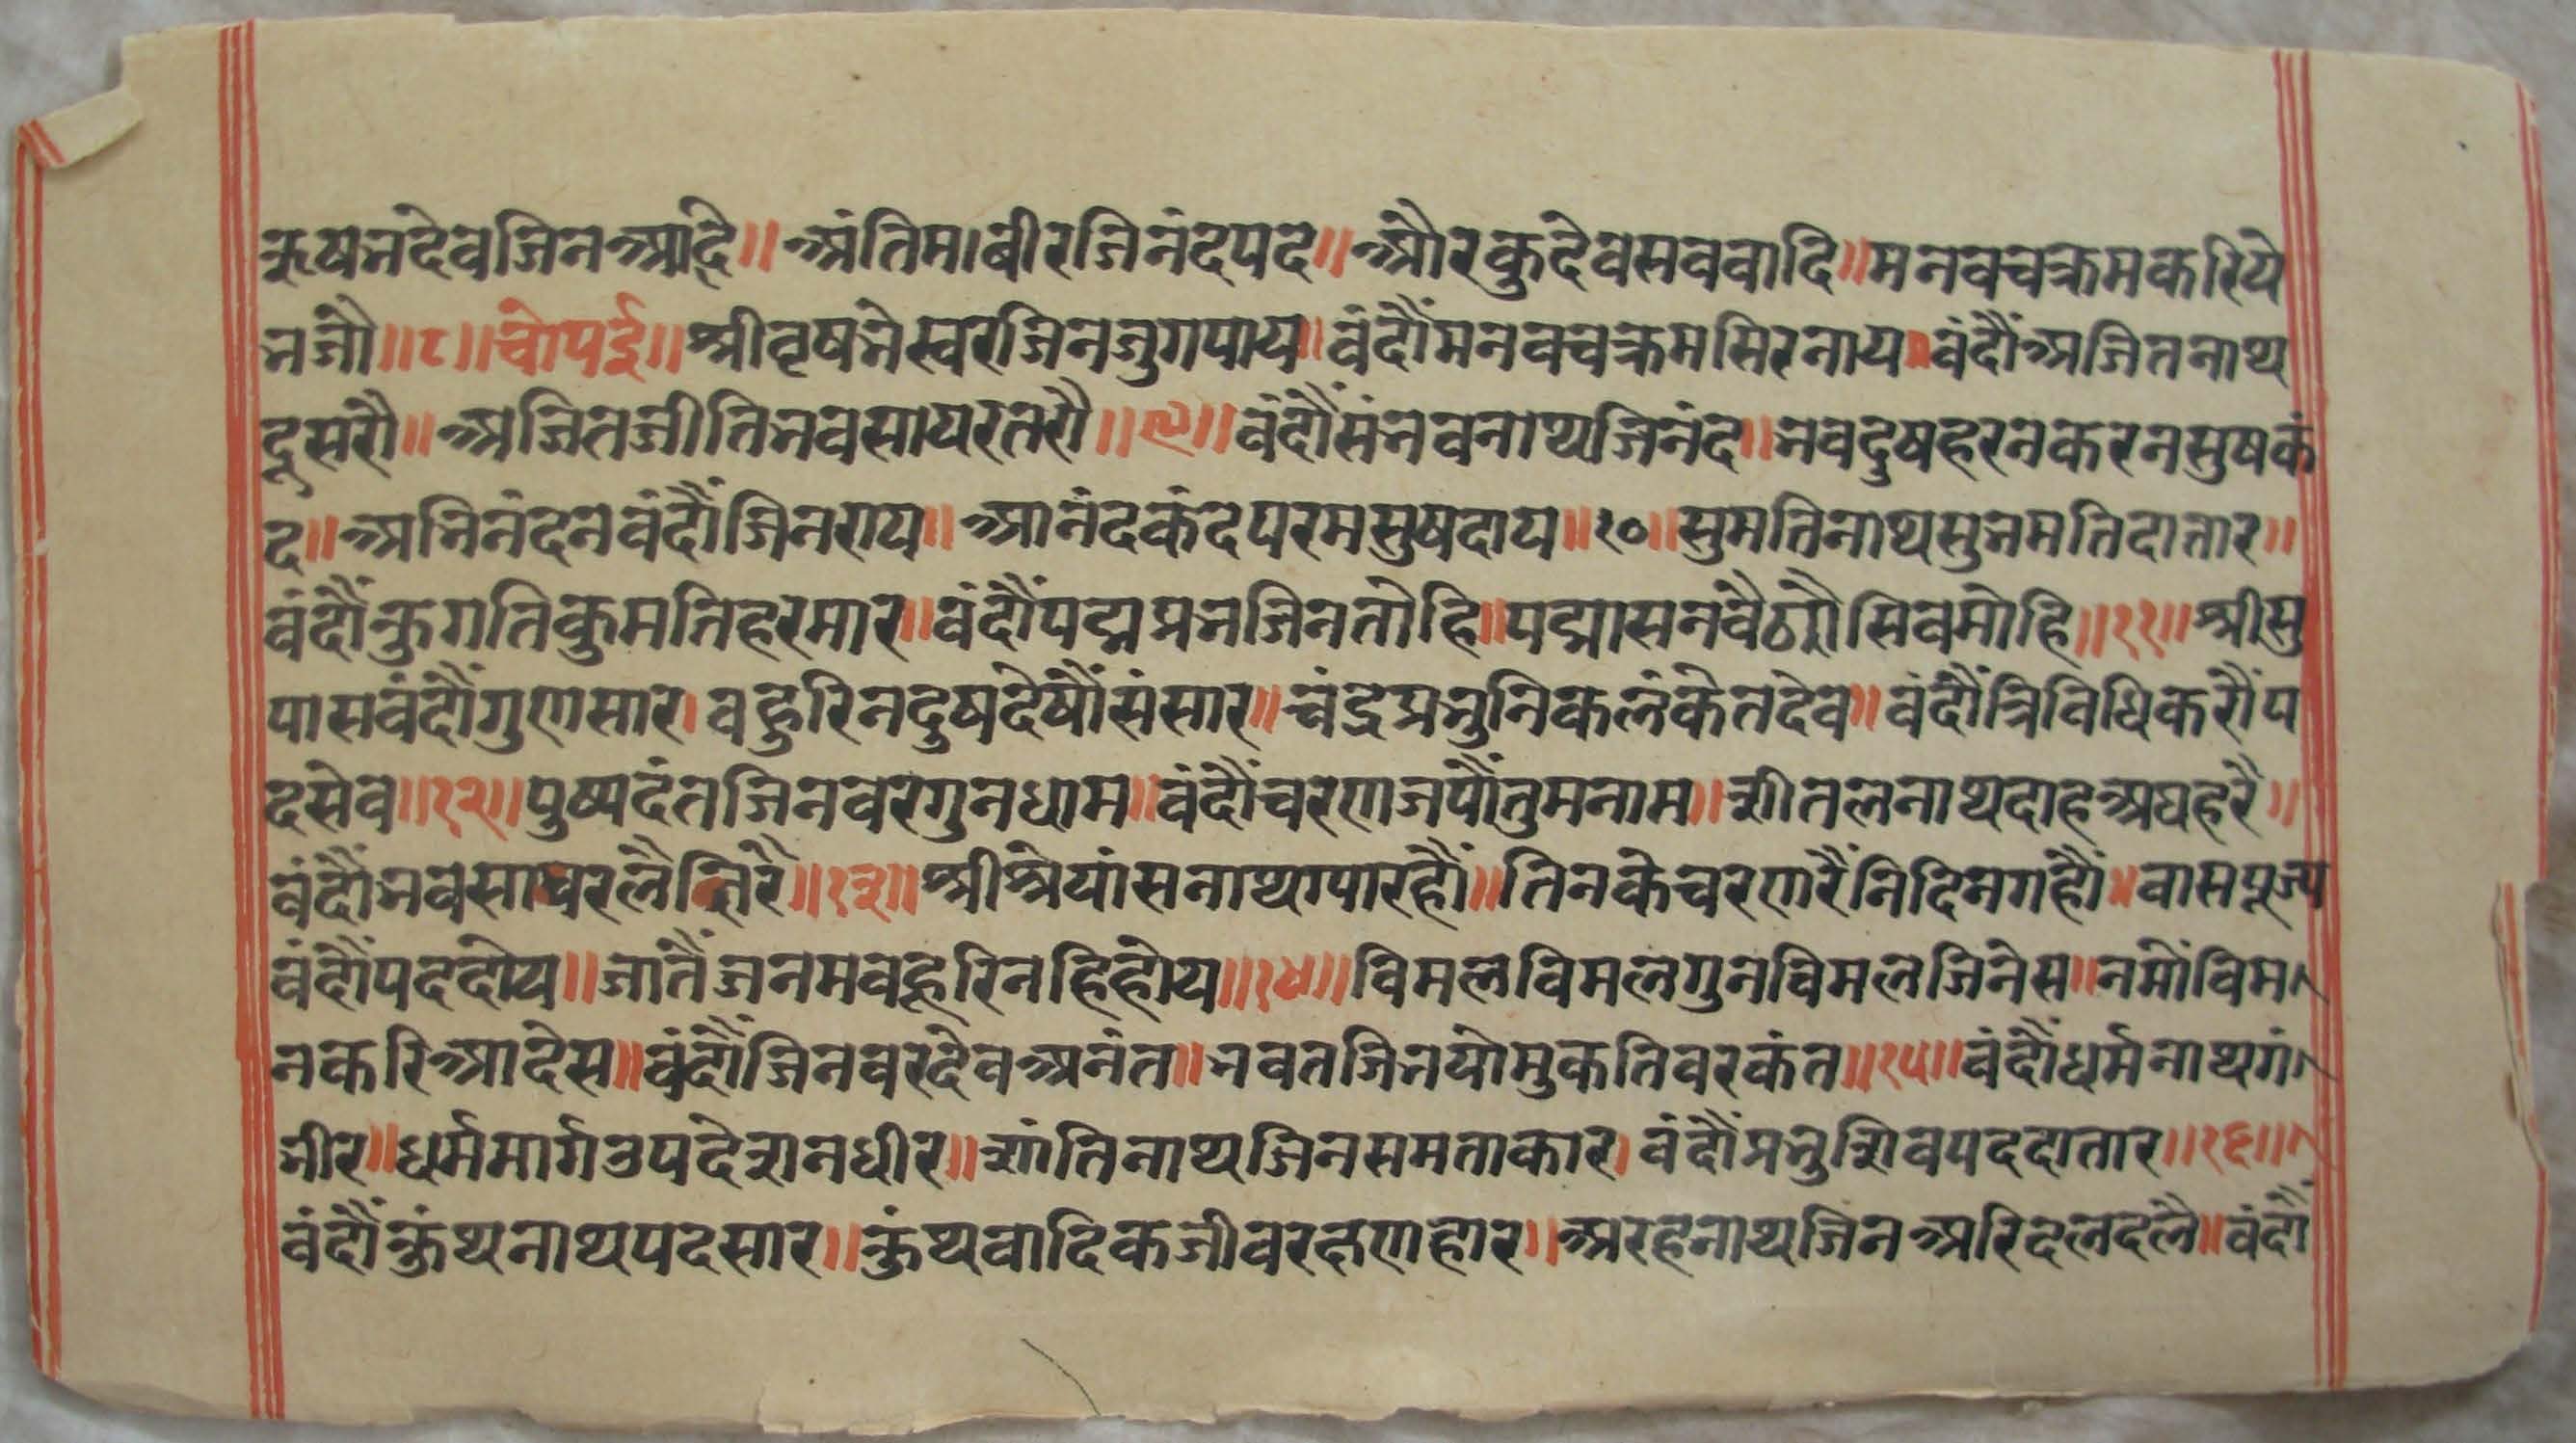 ऋषभदेवजिनआदे॥ अंतिम।बीरजिनंदपद॥ औरकुदेवसबबादि॥ मनवचक्रमकरिये
भजौ॥८॥चोपई॥ श्रीवृषभेस्वरजिनजुगपाय॥ वंदौंमनवचक्रमसिरनाय॥ वंदौंअजितनाथ
दूसरौ॥ अजितजीतिभवसायरतरौ॥९॥ वंदौंसंभवनाथजिनंद॥ भवदुषहरनकरनसुषकं
द॥ अभिनंदनवंदौंजिनराय॥ आनंदकंदपरमसुषदाय॥१०॥ सुमतिनाथसुभमतिदातार॥
वंदौंकुगतिकुमतिहरमार॥ वंदौंपद्मप्रभजिनतोहि॥ पद्मासनबैठ्यौसिवमोहि॥११॥ श्रीसु
पासवंदौंगुणसार। बहुरिनदुषदेषौंसंसार॥ चंद्रप्रभुनिकलंकेतदेव॥ वंदौंत्रिविधिकरौंप
दसेव॥१२॥ पुष्पदंतजिनवरगुनधाम॥ वंदौंचरणजपौंतुमनाम॥ शीतलनाथदाहअघहरै॥
वंदौंभवसायरलैतिरै॥१३॥ श्रीश्रेयांसनाथपारहौं॥ तिनकेचरणरैंनिदिनगहौं॥ वासपूज्य
वंदौंपददोय॥ जातैंजनमबहूरिनहिहोय॥१४॥ विमलविमलगुनविमलजिनेस॥ नमोंविम
नकरिआदेस॥ वंदौंजिनवरदेवअनंत॥ भवतजिभयोमुकतिवरकंत॥१५॥ वंदौंधर्मनाथगं
भीर॥ धर्ममार्गउपदेशनधीर॥ शांतिनाथजिनसमताकार। वंदौंप्रभुशिवपददातार॥१६॥
वंदौंकुंथनाथपदसार॥ कुंथवादिकजीवरक्षणहार॥ अरहनाथजिनअरिदलदलै॥ वंदौं